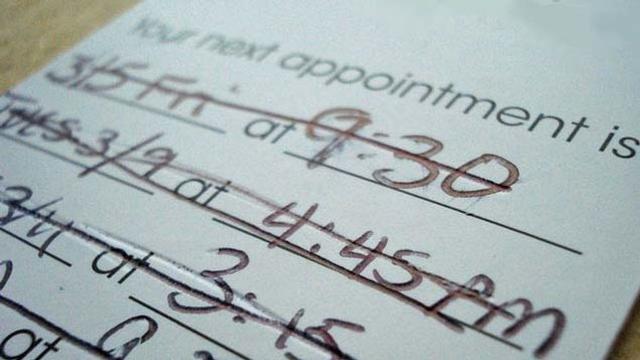 Your next appointment is
3/5 Fri at 9:30
Tues. 3/9 at 4:45 pm
3/11 at 3:15
at